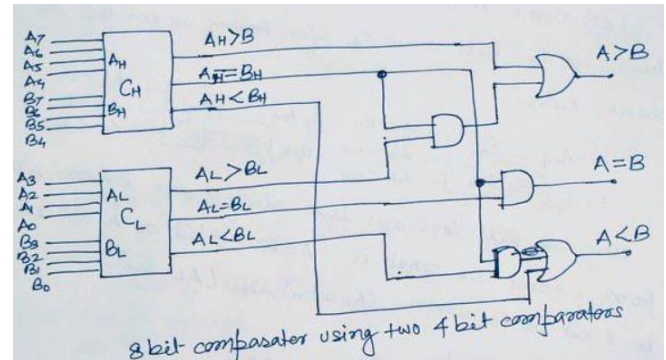 A7
A6
A5
A4
B7
B6
B5
B4
AH
CH
BH
AH>B
AH=BH
AH<BH
A>B
A3
A2
A1
A0
B3
B2
B1
B0
AL
CL
BL
AL>BL
AL=BL
AL<BL
A=B
A<B
8 bit comparator using two 4 bit comparators